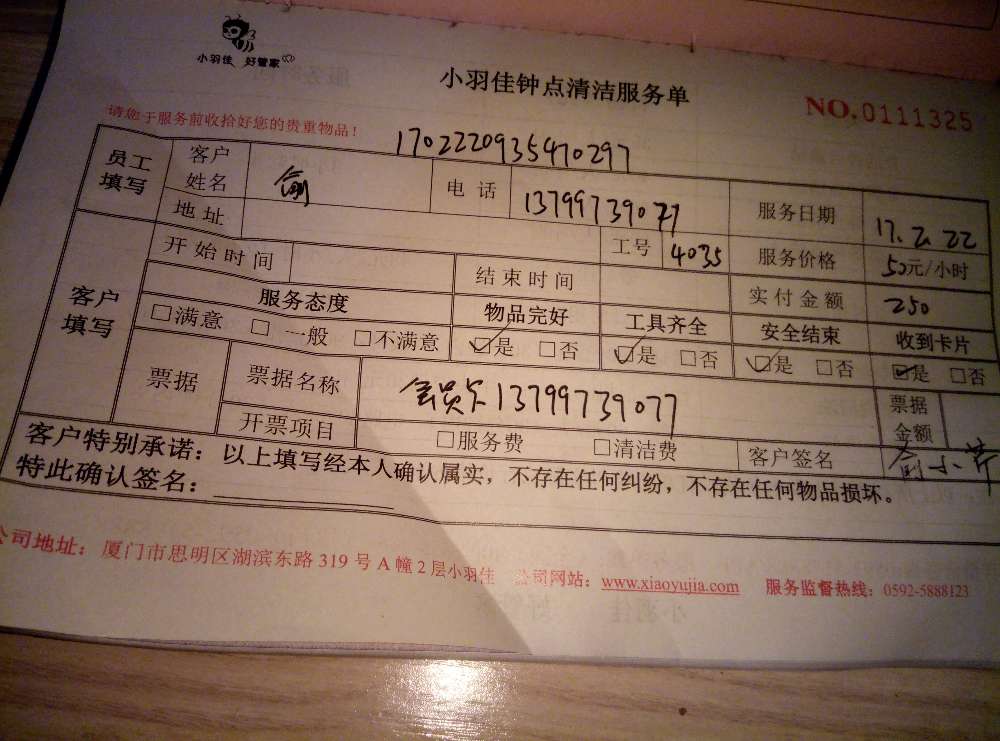 小羽佳 好管家
小羽佳钟点清洁服务单
NO.0111325
请您于服务前收拾好您的贵重物品！
1702220935470297
员工填写 客户姓名 俞 电话 13799739077 服务日期 17.2.22
地址 工号 4035 服务价格 50元/小时
客户填写 开始时间 结束时间 实付金额 250
服务态度 物品完好 工具齐全 安全结束 收到卡片
□满意 □一般 □不满意 ☑是 □否 ☑是 □否 ☑是 □否 ☑是 □否
票据 票据名称 会员卡13799739077 票据金额
开票项目 □服务费 □清洁费 客户签名 俞小
客户特别承诺：以上填写经本人确认属实，不存在任何纠纷，不存在任何物品损坏。
特此确认签名：
公司地址：厦门市思明区湖滨东路319号A幢2层小羽佳 公司网站：www.xiaoyujia.com 服务监督热线：0592-5888123